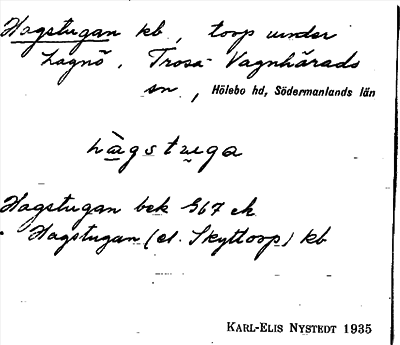 Hagstugan kb, torp under
Lagnö, Trosa-Vagnhärads
sn, Hölebo hd, Södermanlands län
hàgstuga
Hagstugan bek 567 ek
Hagstugan (el. Skyttorp) kb
KARL-ELIS NYSTEDT 1935